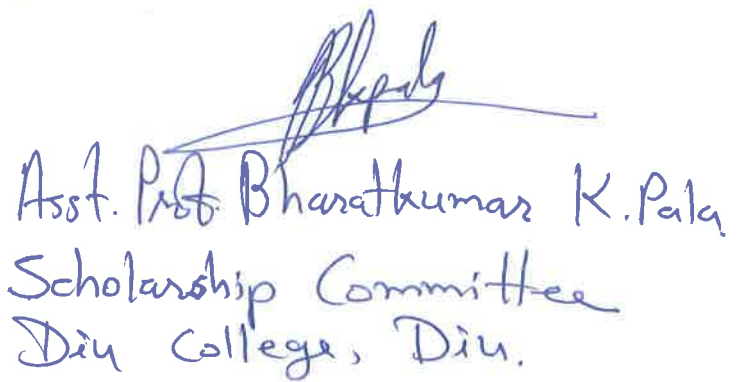 Bkpala
Asst. Prof. Bharatkumar K. Pala
Scholarship Committee
Diu College, Diu.